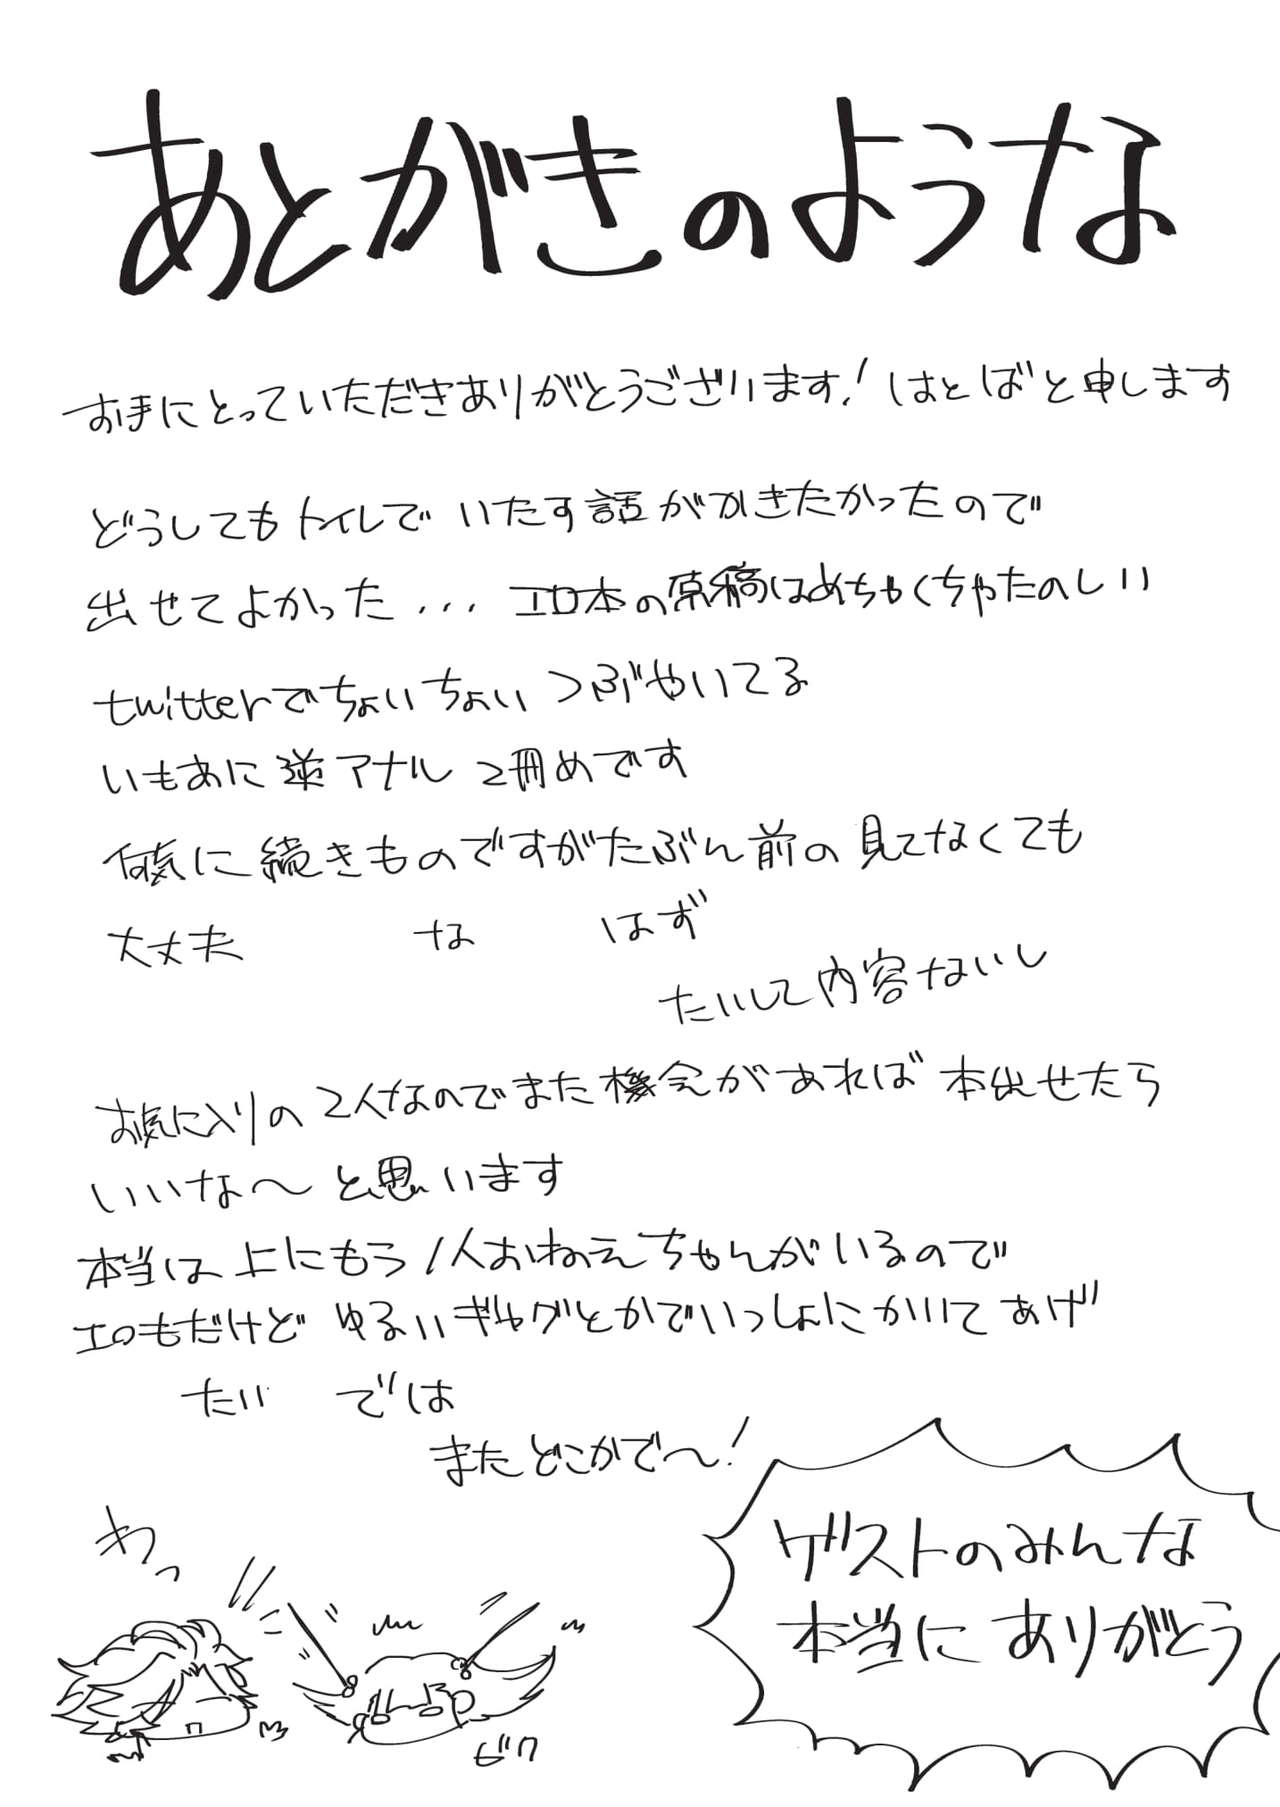 あとがきのような
お手にとっていただきありがとうございます!はとばと申します
どうしてもトイレでいたす話がかきたかったので
出せてよかった...エロ本の原稿はめちゃくちゃたのしい
twitterでちょいちょいつぶやいてる
いもあに逆アナル2冊めです
何気に続きものですがたぶん前の見てなくても
大丈夫 な はず
たいして内容ないし
お気に入りの2人なのでまた機会があれば本出せたら
いいな〜と思います
本当は上にもう1人おねえちゃんがいるので
エロもだけどゆるいギャグとかでいっしょにかいてあげ
たい では
またどこかで〜!
わっ
ゲストのみんな
本当にありがとう